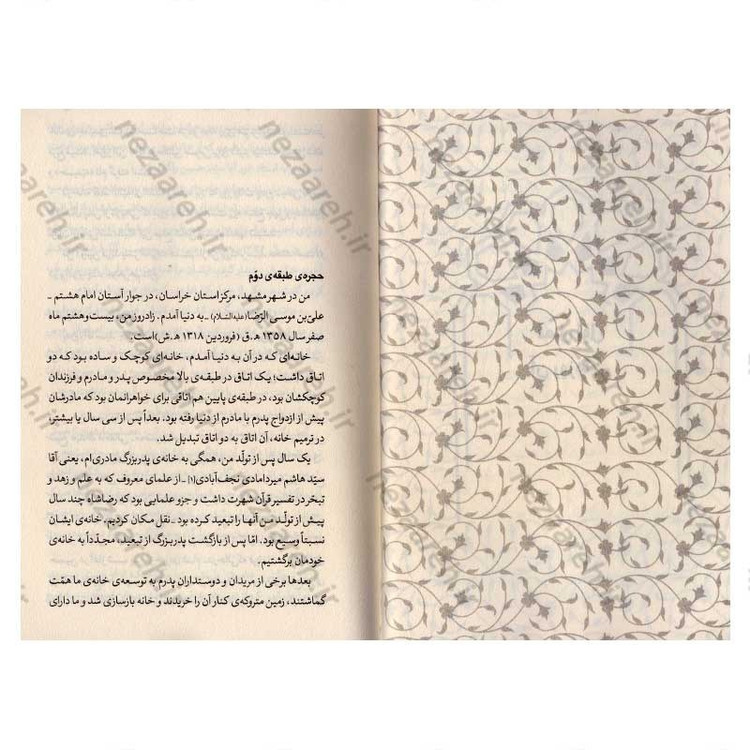 حجره‌ی طبقه‌ی دوّم
من در شهر مشهد، مرکز استان خراسان، در جوار آستان امام هشتم ـ
علیّ‌بن موسی الرّضا(علیه‌السّلام) ـ به دنیا آمدم. زادروز من، بیست و هشتم ماه
صفر سال ۱۳۵۸ ه‍.ق (فروردین ۱۳۱۸ ه‍.ش) است.
خانه‌ای که در آن به دنیا آمدم، خانه‌ای کوچک و ساده بود که دو
اتاق داشت؛ یک اتاق در طبقه‌ی بالا مخصوص پدر و مادرم و فرزندان
کوچکشان بود، در طبقه‌ی پایین هم اتاقی برای خواهرانمان بود که مادرشان
پیش از ازدواج پدرم با مادرم از دنیا رفته بود. بعداً پس از سی سال یا بیشتر،
در ترمیم خانه، آن اتاق به دو اتاق تبدیل شد.
یک سال پس از تولّد من، همگی به خانه‌ی پدربزرگ مادری‌ام، یعنی آقا
سیّد هاشم میردامادی نجف‌آبادی(۱) ـ از علمای معروف که به علم و زهد و
تبحّر در تفسیر قرآن شهرت داشت و جزو علمایی بود که رضاشاه چند سال
پیش از تولّد من آنها را تبعید کرده بود ـ نقل مکان کردیم. خانه‌ی ایشان
نسبتاً وسیع بود. امّا پس از بازگشت پدربزرگ از تبعید، مجدّداً به خانه‌ی
خودمان برگشتیم.
بعدها برخی از مریدان و دوستداران پدرم به توسعه‌ی خانه‌ی ما همّت
گماشتند، زمین متروکه‌ی کنار آن را خریدند و خانه بازسازی شد و ما دارای
nezaareh.ir
nezaareh.ir
nezaareh.ir
nezaareh.ir
nezaareh.ir